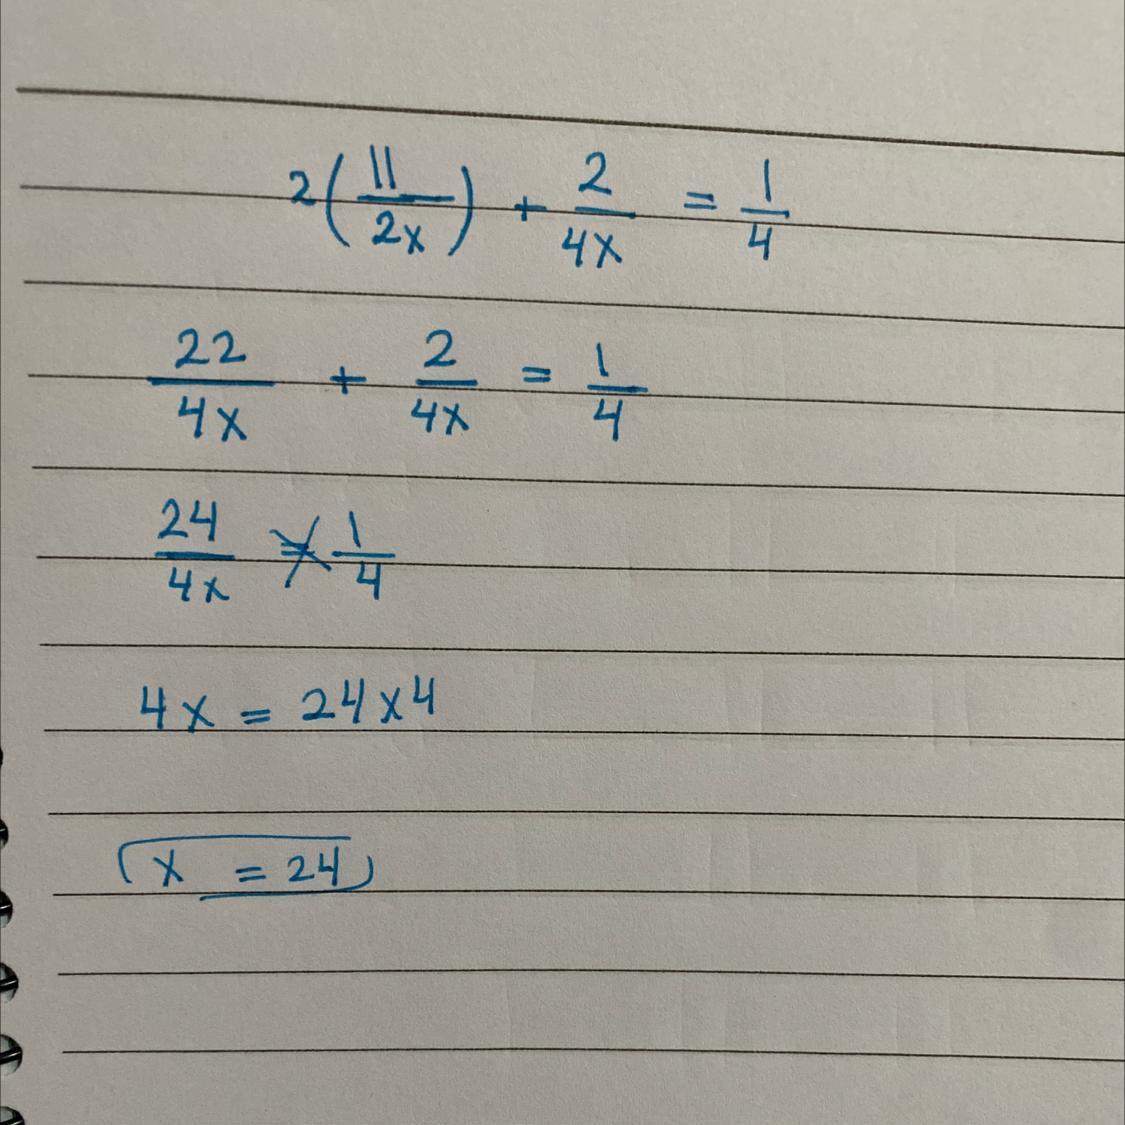 2(11/2x) + 2/4x = 1/4
22/4x + 2/4x = 1/4
24/4x = 1/4
4x = 24x4
x = 24